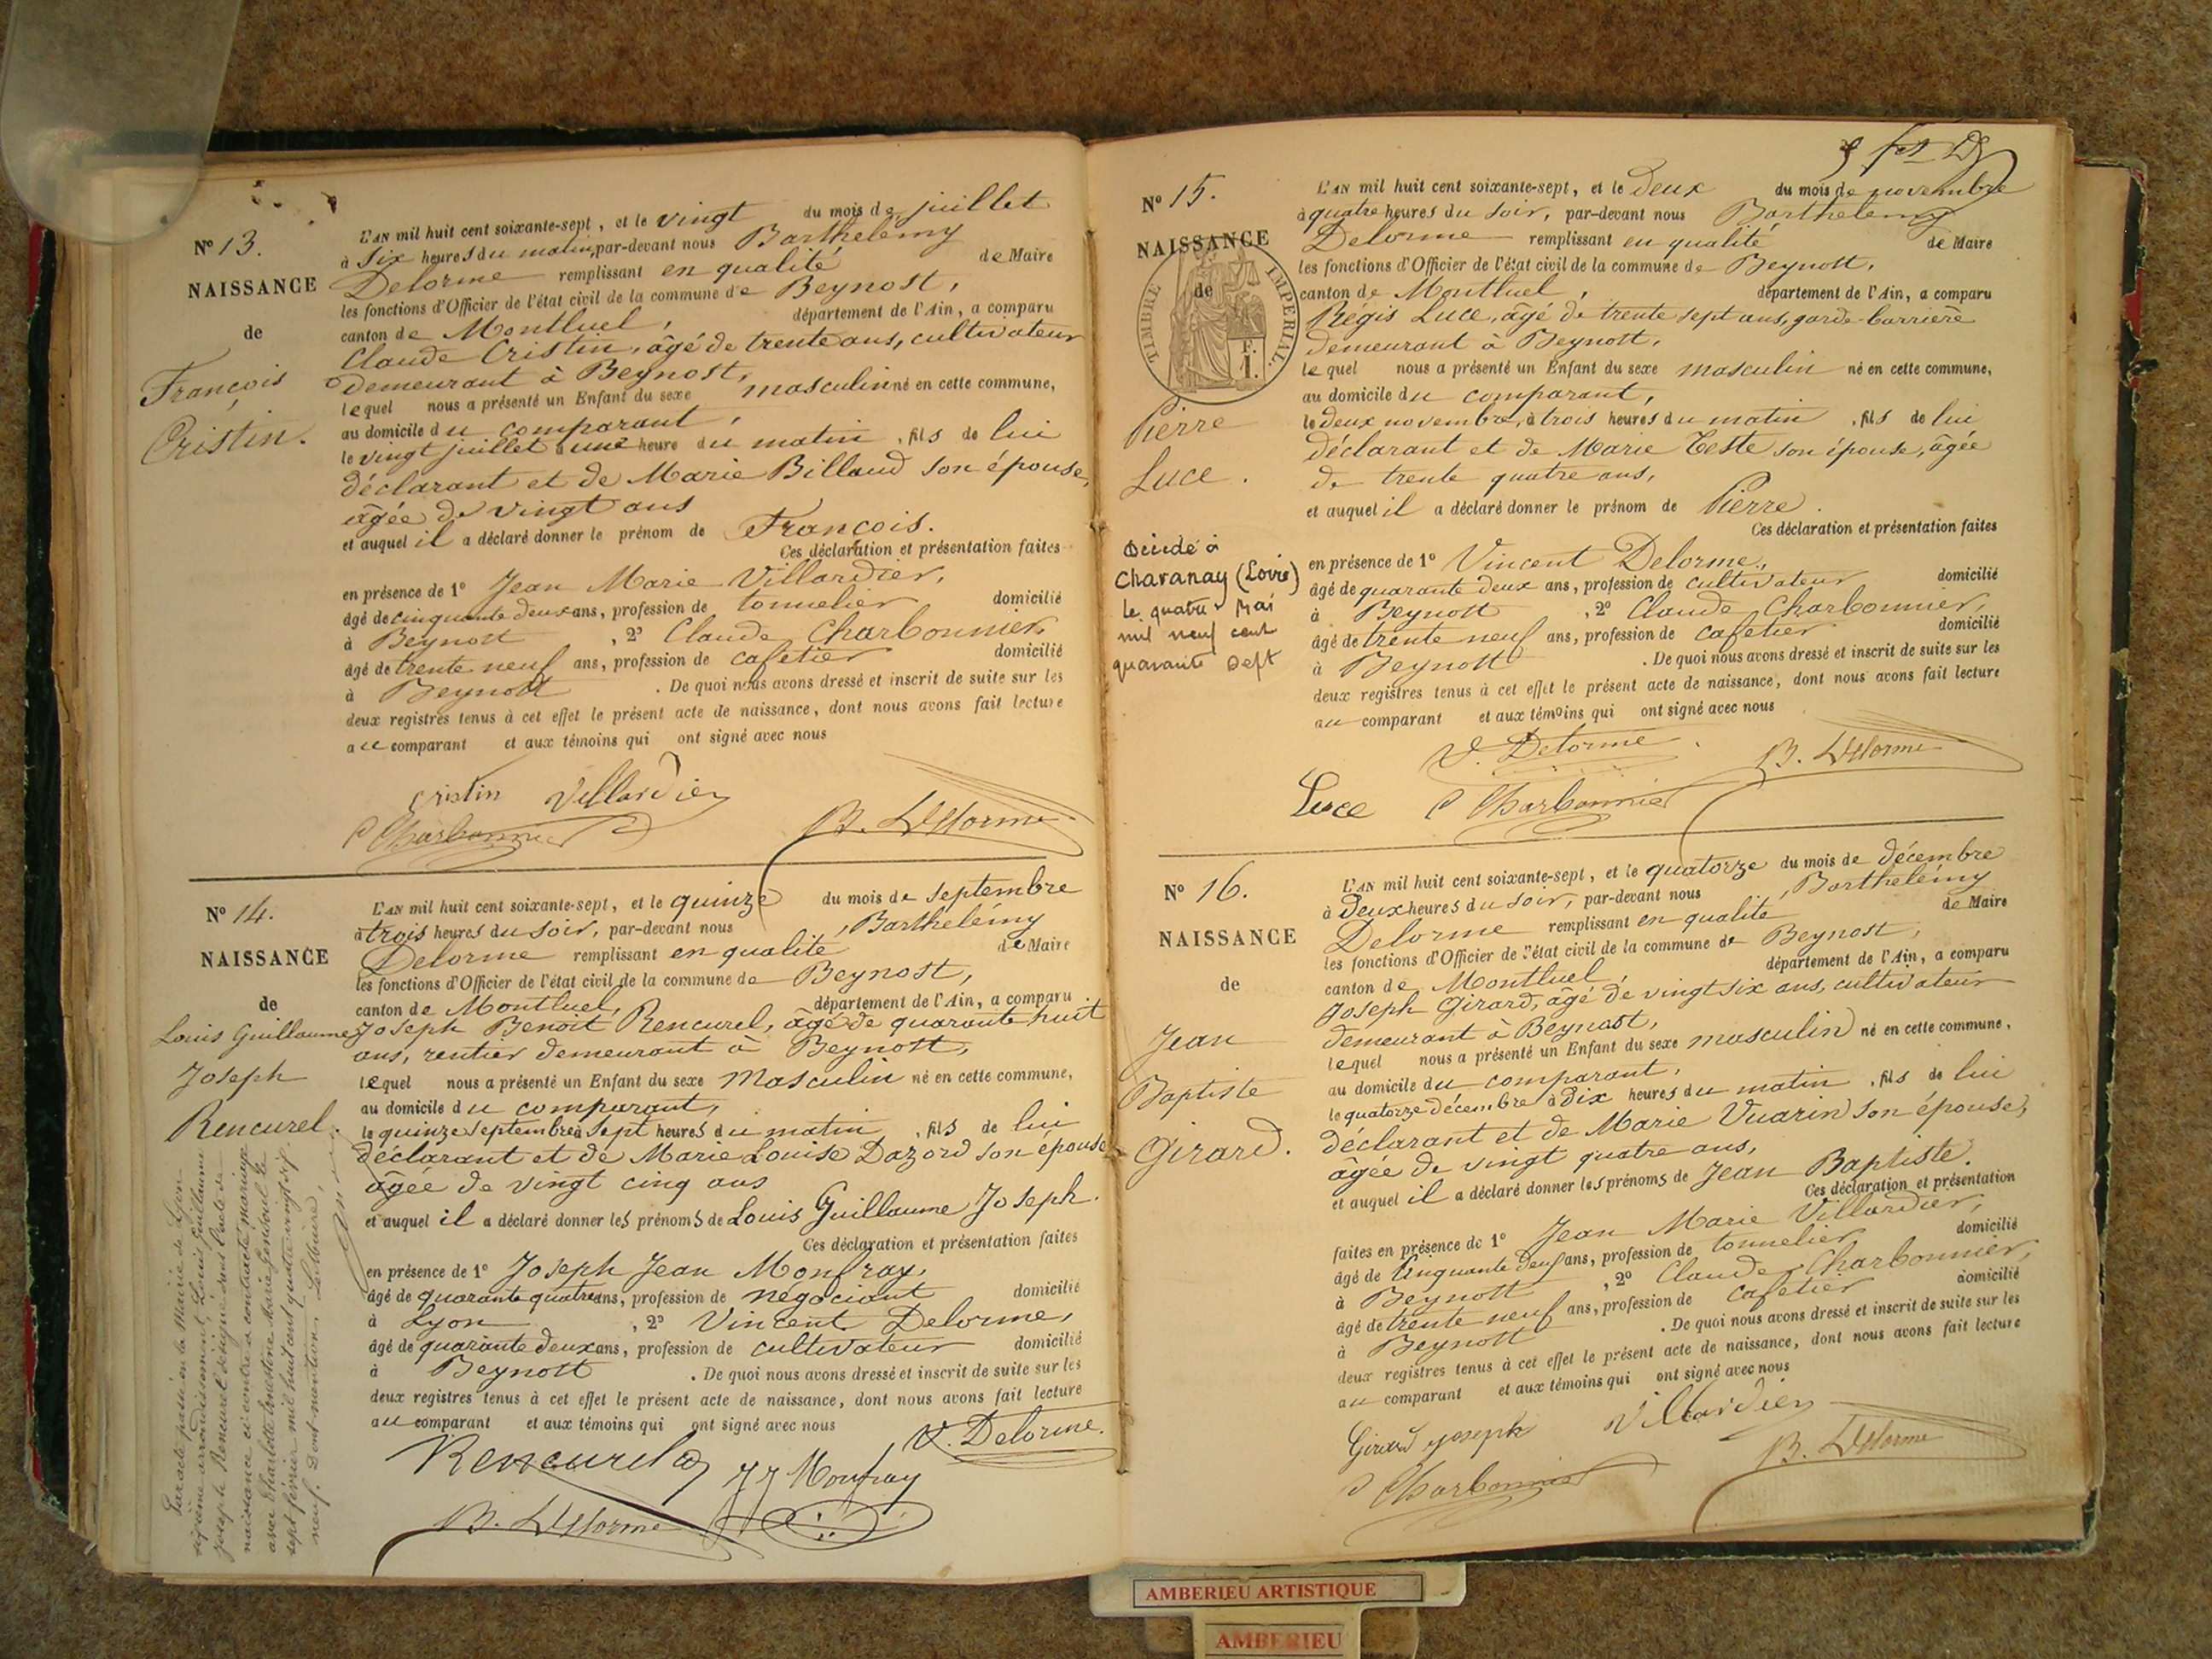 N° 13.
NAISSANCE
de
François
Cristin.
L'AN mil huit cent soixante-sept, et le vingt du mois de juillet
à six heures du matin, par-devant nous Barthelémy
Delorme remplissant en qualité de Maire
les fonctions d'Officier de l'état civil de la commune de Beynost,
canton de Montluel, département de l'Ain, a comparu
Claude Cristin, âgé de trente ans, cultivateur
demeurant à Beynost,
lequel nous a présenté un Enfant du sexe masculin né en cette commune,
au domicile du comparant,
le vingt juillet à une heure du matin, fils de lui
déclarant et de Marie Billaud son épouse,
âgée de vingt ans
et auquel il a déclaré donner le prénom de François.
Ces déclaration et présentation faites
en présence de 1° Jean Marie Villardier,
âgé de cinquante deux ans, profession de tonnelier domicilié
à Beynost, 2° Claude Charbonnier,
âgé de trente neuf ans, profession de cafetier domicilié
à Beynost. De quoi nous avons dressé et inscrit de suite sur les
deux registres tenus à cet effet le présent acte de naissance, dont nous avons fait lecture
au comparant et aux témoins qui ont signé avec nous
Cristin Villardier
C Charbonnier B. Delorme
N° 14.
NAISSANCE
de
Louis Guillaume
Joseph
Rencurel.
L'AN mil huit cent soixante-sept, et le quinze du mois de septembre
à trois heures du soir, par-devant nous, Barthelémy
Delorme remplissant en qualité de Maire
les fonctions d'Officier de l'état civil de la commune de Beynost,
canton de Montluel, département de l'Ain, a comparu
Joseph Benoit Rencurel, âgé de quarante huit
ans, rentier demeurant à Beynost,
lequel nous a présenté un Enfant du sexe Masculin né en cette commune,
au domicile du comparant,
le quinze septembre à sept heures du matin, fils de lui
déclarant et de Marie Louise Dazord son épouse
âgée de vingt cinq ans
et auquel il a déclaré donner les prénoms de Louis Guillaume Joseph.
Ces déclaration et présentation faites
en présence de 1° Joseph Jean Monfray,
âgé de quarante quatre ans, profession de négociant domicilié
à Lyon, 2° Vincent Delorme,
âgé de quarante deux ans, profession de cultivateur domicilié
à Beynost. De quoi nous avons dressé et inscrit de suite sur les
deux registres tenus à cet effet le présent acte de naissance, dont nous avons fait lecture
au comparant et aux témoins qui ont signé avec nous
V. Delorme.
Rencurel JJ Monfray
B. Delorme
Par acte passé en la Mairie de Lyon
sixième arrondissement, Louis Guillaume
Joseph Rencurel désigné dans l'acte de
naissance ci contre a contracté mariage
avec Charlotte Ernestine Marie Gensoul le
sept février mil huit cent quatre vingt dix
neuf. Dont mention. Le Maire,
N° 15.
NAISSANCE
de
TIMBRE IMPERIAL.
F.
1.
Pierre
Luce.
Décédé à
Chavanay (Loire)
le quatre Mai
mil neuf cent
quarante sept
L'AN mil huit cent soixante-sept, et le deux du mois de novembre
à quatre heures du soir, par-devant nous Barthelemy
Delorme remplissant en qualité de Maire
les fonctions d'Officier de l'état civil de la commune de Beynost,
canton de Montluel, département de l'Ain, a comparu
Régis Luce, âgé de trente sept ans, garde-barrière
demeurant à Beynost,
lequel nous a présenté un Enfant du sexe masculin né en cette commune,
au domicile du comparant,
le deux novembre, à trois heures du matin, fils de lui
déclarant et de Marie Teste son épouse, âgée
de trente quatre ans,
et auquel il a déclaré donner le prénom de Pierre.
Ces déclaration et présentation faites
en présence de 1° Vincent Delorme,
âgé de quarante deux ans, profession de cultivateur domicilié
à Beynost, 2° Claude Charbonnier,
âgé de trente neuf ans, profession de cafetier domicilié
à Beynost. De quoi nous avons dressé et inscrit de suite sur les
deux registres tenus à cet effet le présent acte de naissance, dont nous avons fait lecture
au comparant et aux témoins qui ont signé avec nous
V. Delorme. B. Delorme
Luce C Charbonnier
N° 16.
NAISSANCE
de
Jean
Baptiste
Girard.
L'AN mil huit cent soixante-sept, et le quatorze du mois de décembre
à deux heures du soir, par-devant nous, Barthelémy
Delorme remplissant en qualité de Maire
les fonctions d'Officier de l'état civil de la commune de Beynost,
canton de Montluel, département de l'Ain, a comparu
Joseph Girard, âgé de vingt six ans, cultivateur
demeurant à Beynost,
lequel nous a présenté un Enfant du sexe masculin né en cette commune,
au domicile du comparant,
le quatorze décembre à dix heures du matin, fils de lui
déclarant et de Marie Vuarin son épouse,
âgée de vingt quatre ans,
et auquel il a déclaré donner les prénoms de Jean Baptiste.
Ces déclaration et présentation
faites en présence de 1° Jean Marie Villardier,
âgé de cinquante deux ans, profession de tonnelier domicilié
à Beynost, 2° Claude Charbonnier,
âgé de trente neuf ans, profession de cafetier domicilié
à Beynost. De quoi nous avons dressé et inscrit de suite sur les
deux registres tenus à cet effet le présent acte de naissance, dont nous avons fait lecture
au comparant et aux témoins qui ont signé avec nous
Girard Joseph Villardier
C Charbonnier B. Delorme
AMBERIEU ARTISTIQUE
AMBERIEU